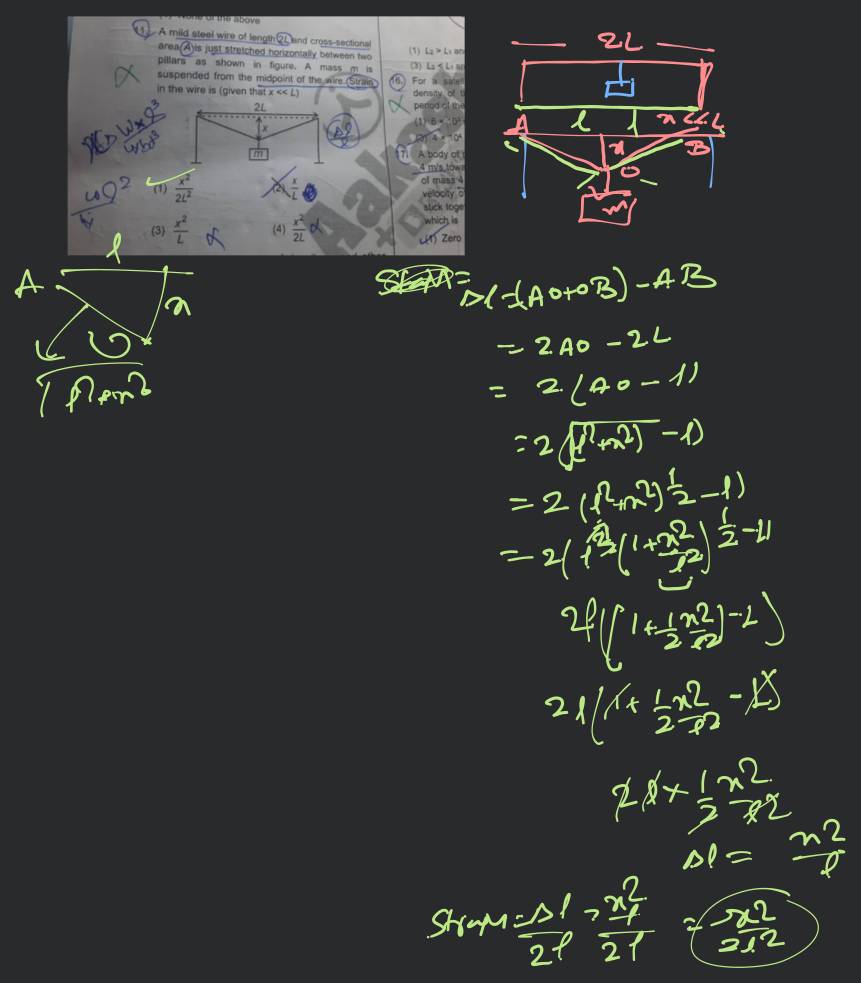 None of the above
11.
A mild steel wire of length 2L and cross-sectional
area A is just stretched horizontally between two
pillars as shown in figure. A mass m is
suspended from the midpoint of the wire. Strain
in the wire is (given that x << L)
2L
x
m
(1) x²/2L²
(2) x/L
(3) x²/L
(4) x²/2L
(1) L₂ > L₁ an
(3) L₂ < L₁ an
16. For a satell
density of t
period of the
17. A body of
4 m/s towa
of mass 4
velocity o
stick toge
which is
(1) Zero
Aakas
2L
x<<L
A
l
l
B
x
O
m
l
A
x
√l²+x²
Δl = (AO+OB) - AB
= 2AO - 2L
= 2(AO - l)
= 2(√(l²+x²) - l)
= 2(l²+x²)^1/2 - l)
= 2(l²(1+x²/l²)^1/2 - l)
2l((1+1/2 x²/l²) - 1)
2l(1+1/2 x²/l² - 1)
2l × 1/2 x²/l²
Δl = x²/l
Strain = Δl/2l = x²/l/2l = x²/2l²